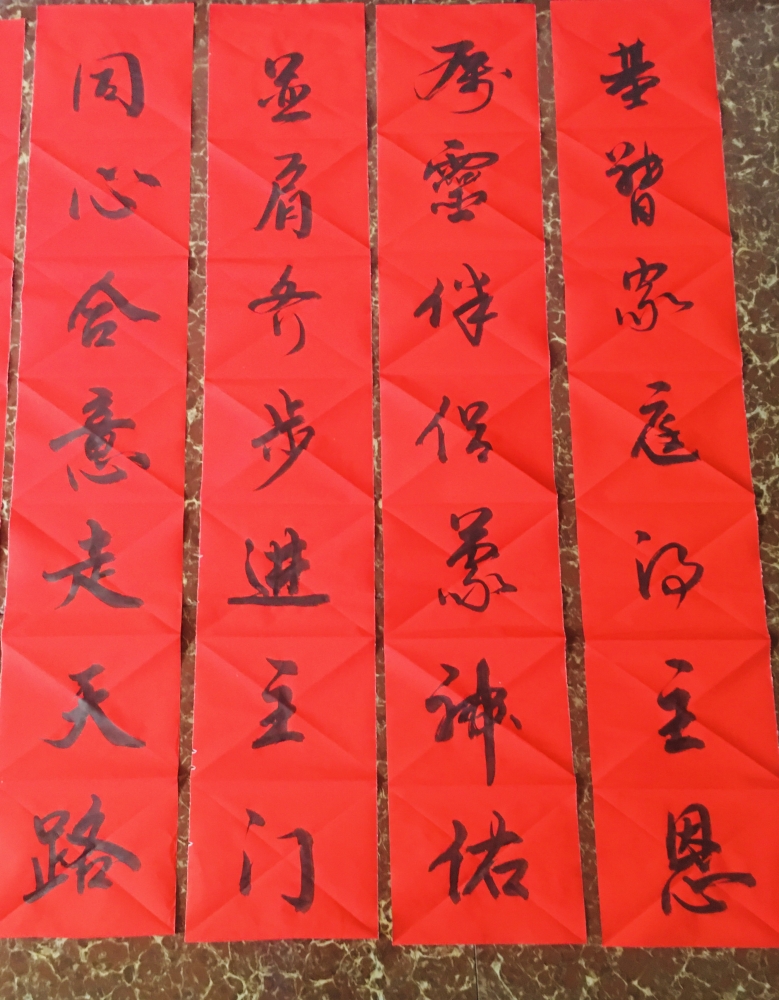 基督家庭得主恩
属靈伴侣蒙神佑
並肩齐步进主门
同心合意走天路